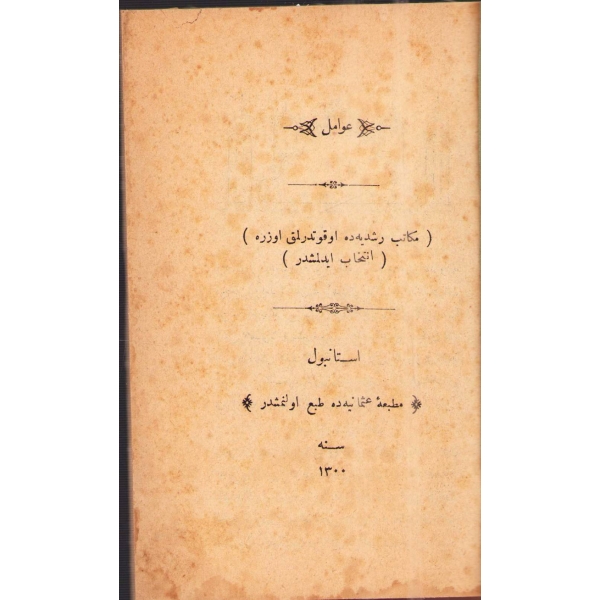 عوامل
( مكاتب رشديه‌ده اوقوتدرلمق اوزره )
( انتخاب ايدلمشدر )
استانبول
مطبعهٔ عثمانيه‌ده طبع اولنمشدر
سنه
١٣٠٠